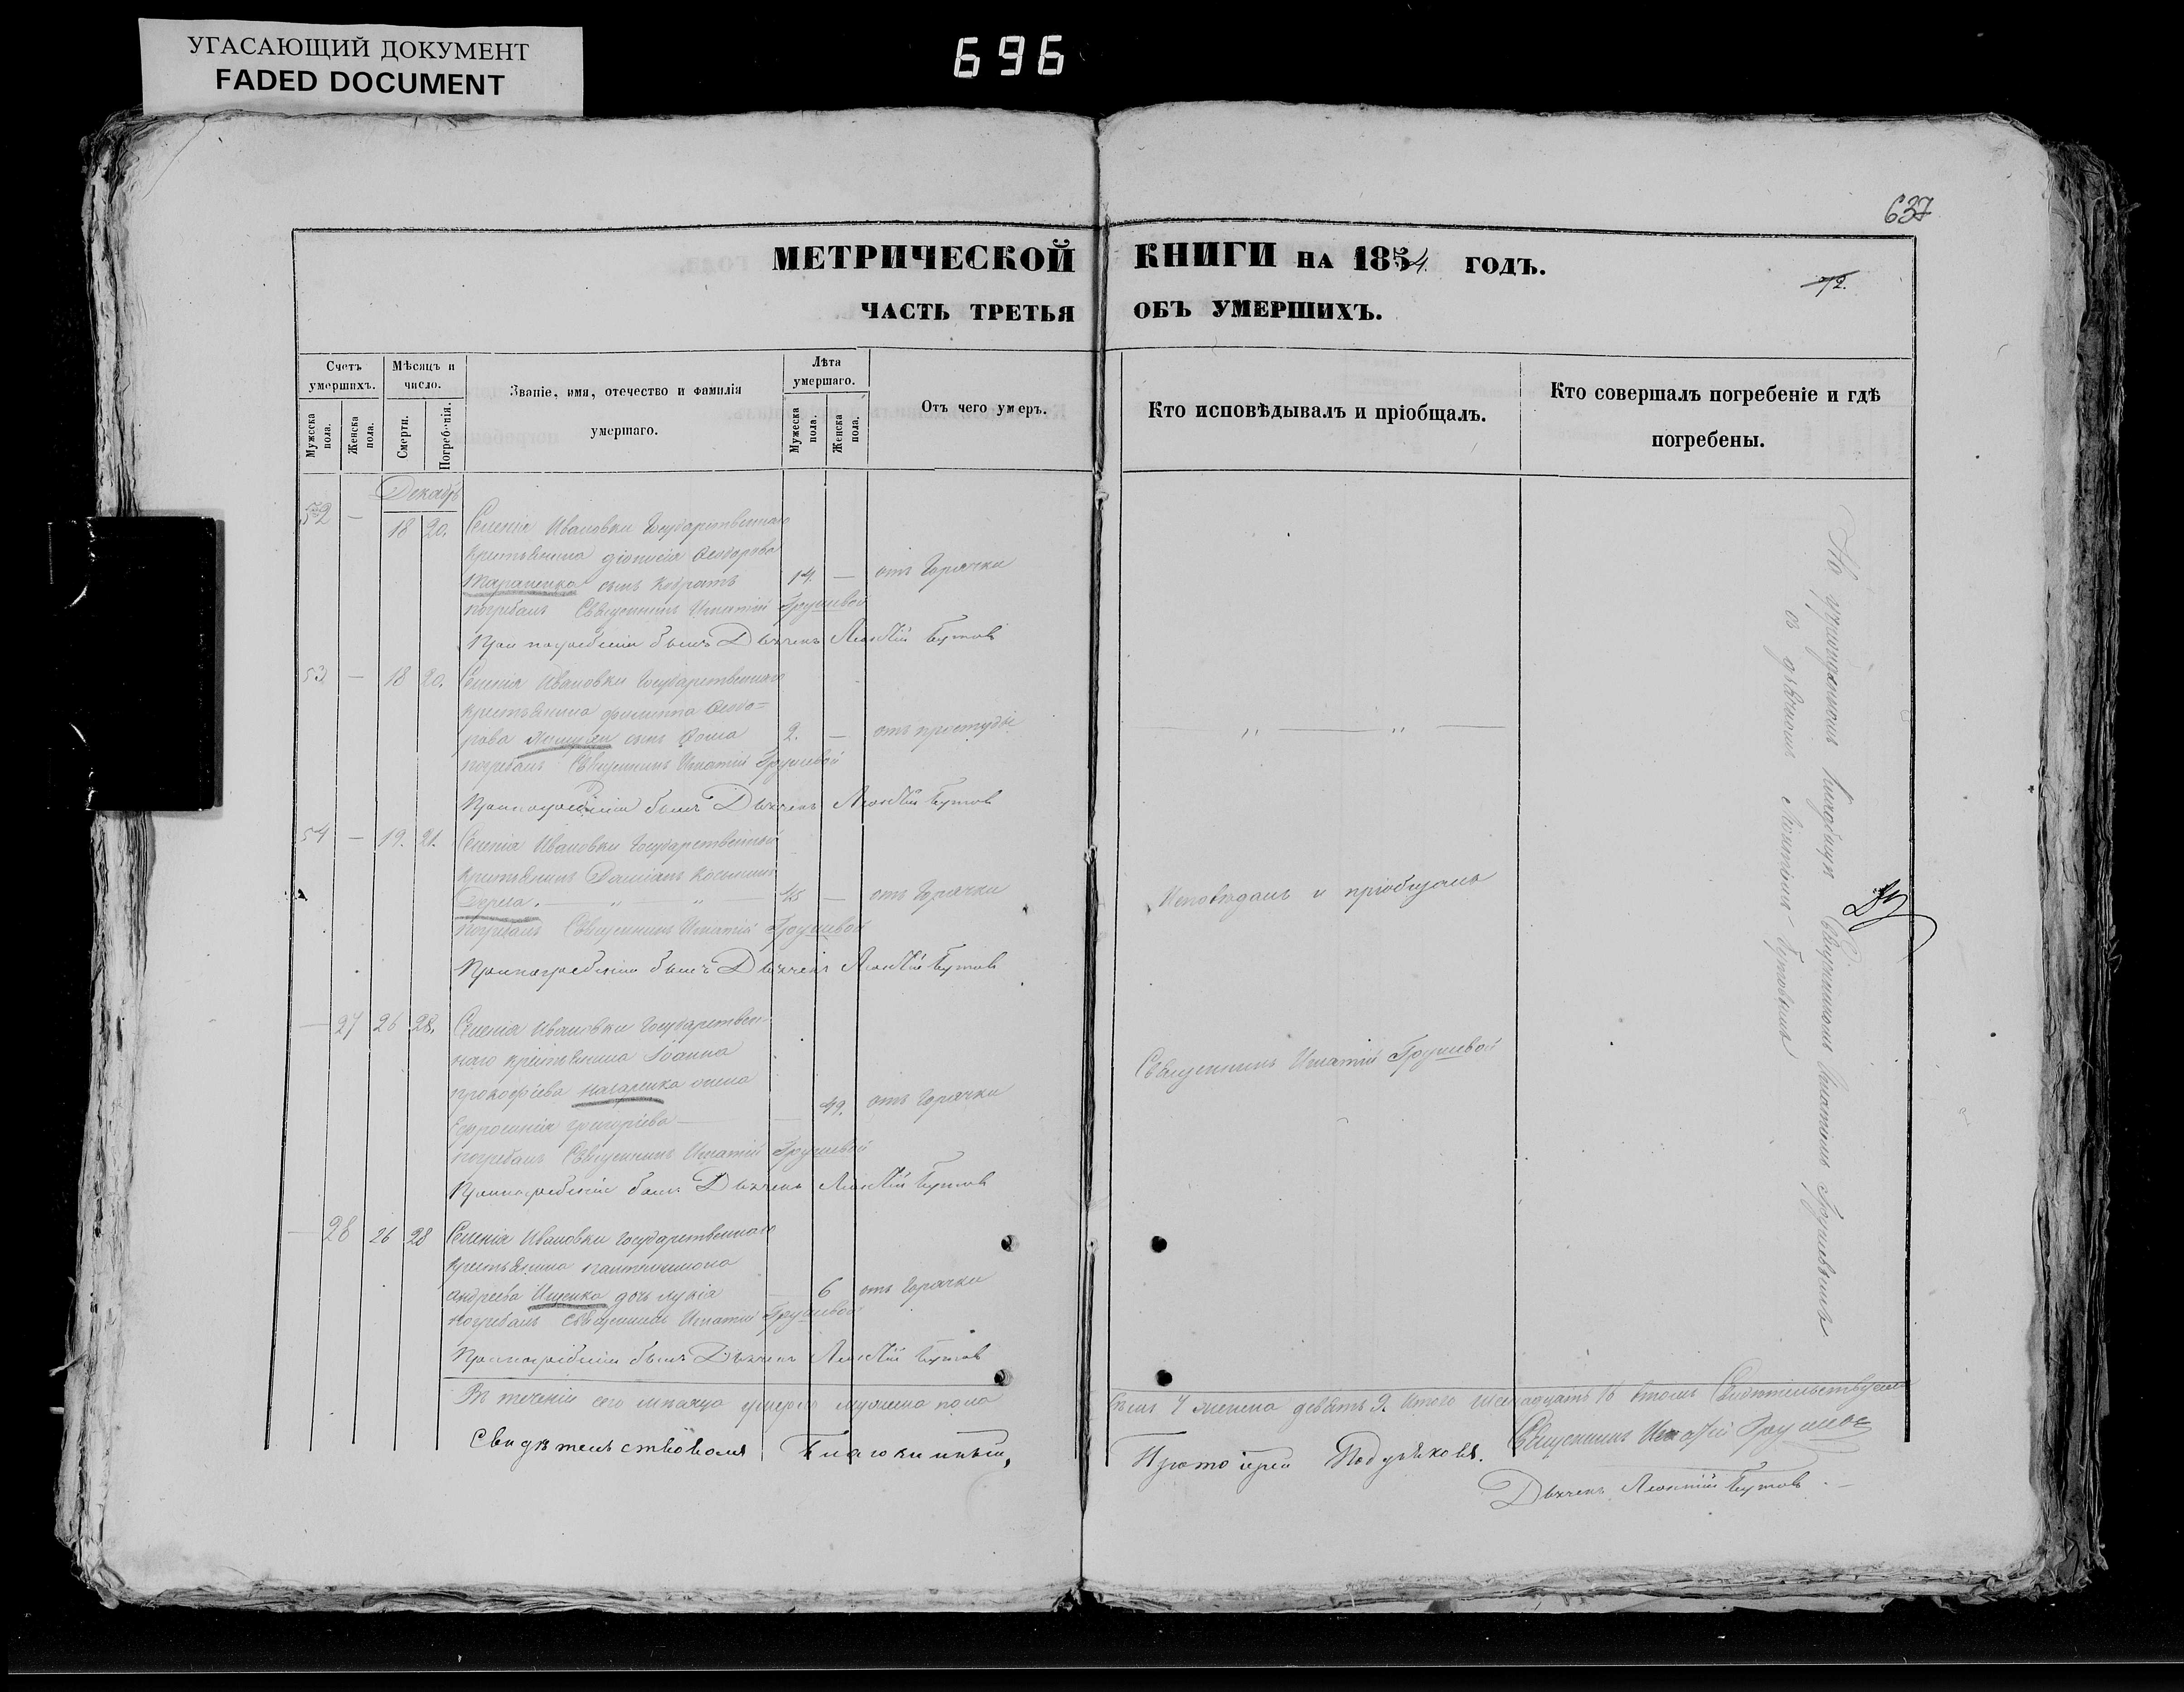 УГАСАЮЩИЙ ДОКУМЕНТ
FADED DOCUMENT
696
637
МЕТРИЧЕСКОЙ КНИГИ НА 1854 ГОДЪ.
72.
ЧАСТЬ ТРЕТЬЯ ОБЪ УМЕРШИХЪ.
Счетъ умершихъ.
Мужеска пола.
Женска пола.
Мѣсяцъ и число.
Смерти.
Погребенія.
Званіе, имя, отечество и фамилія умершаго.
Лѣта умершаго.
Мужеска пола.
Женска пола.
Отъ чего умеръ.
Кто исповѣдывалъ и пріобщалъ.
Кто совершалъ погребеніе и гдѣ погребены.
Декабрь
52 — 18 20. Селенія Ивановки Государственнаго
крестьянина Діонисія Ѳеодорова
Тараненка сынъ Кодратъ 14. — отъ Горячки
погребалъ Священникъ Игнатій Грушевой
При погребеніи былъ Дьячекъ Леонтій Бутов
53 — 18 20. Селенія Ивановки Государственнаго
крестьянина Филиппа Ѳеодо=
рова сынъ Ѳома 2. — отъ простуды
погребалъ Священникъ Игнатій Грушевой
При погребеніи былъ Дьячекъ Леонтій Бутов
54 — 19. 21. Селенія Ивановки Государственный
крестьянинъ Даміанъ Косминъ
45 — отъ Горячки
погребалъ Священникъ Игнатій Грушевой
При погребеніи былъ Дьячекъ Леонтій Бутов
Исповѣдалъ и пріобщалъ
— 27 26 28. Селенія Ивановки Государствен-
наго крестьянина Іоанна
Прокофіева жена
Ефросинія Григоріева — 49. отъ Горячки
погребалъ Священникъ Игнатій Грушевой
При погребеніи былъ Дьячекъ Леонтій Бутов
Священникъ Игнатій Грушевой
— 28 26 28 Селенія Ивановки Государственнаго
крестьянина Пантелимона
Андреева Ищенка дочь Лукія — 6 отъ Горячки
погребалъ Священникъ Игнатій Грушевой
При погребеніи былъ Дьячекъ Леонтій Бутов
На кладбищѣ Священникомъ Игнатіемъ Грушевымъ
съ Леонтіемъ Бутовымъ
Въ теченіи сего мѣсяца умерло мужеска пола 7 женска девять 9. Итого шестнадцать 16 въ томъ Свидѣтельствуемъ
Священникъ Игнатій Грушевой
Свидѣтельствовалъ Благочинный, Протоіерей
Дьячекъ Леонтій Бутовъ.